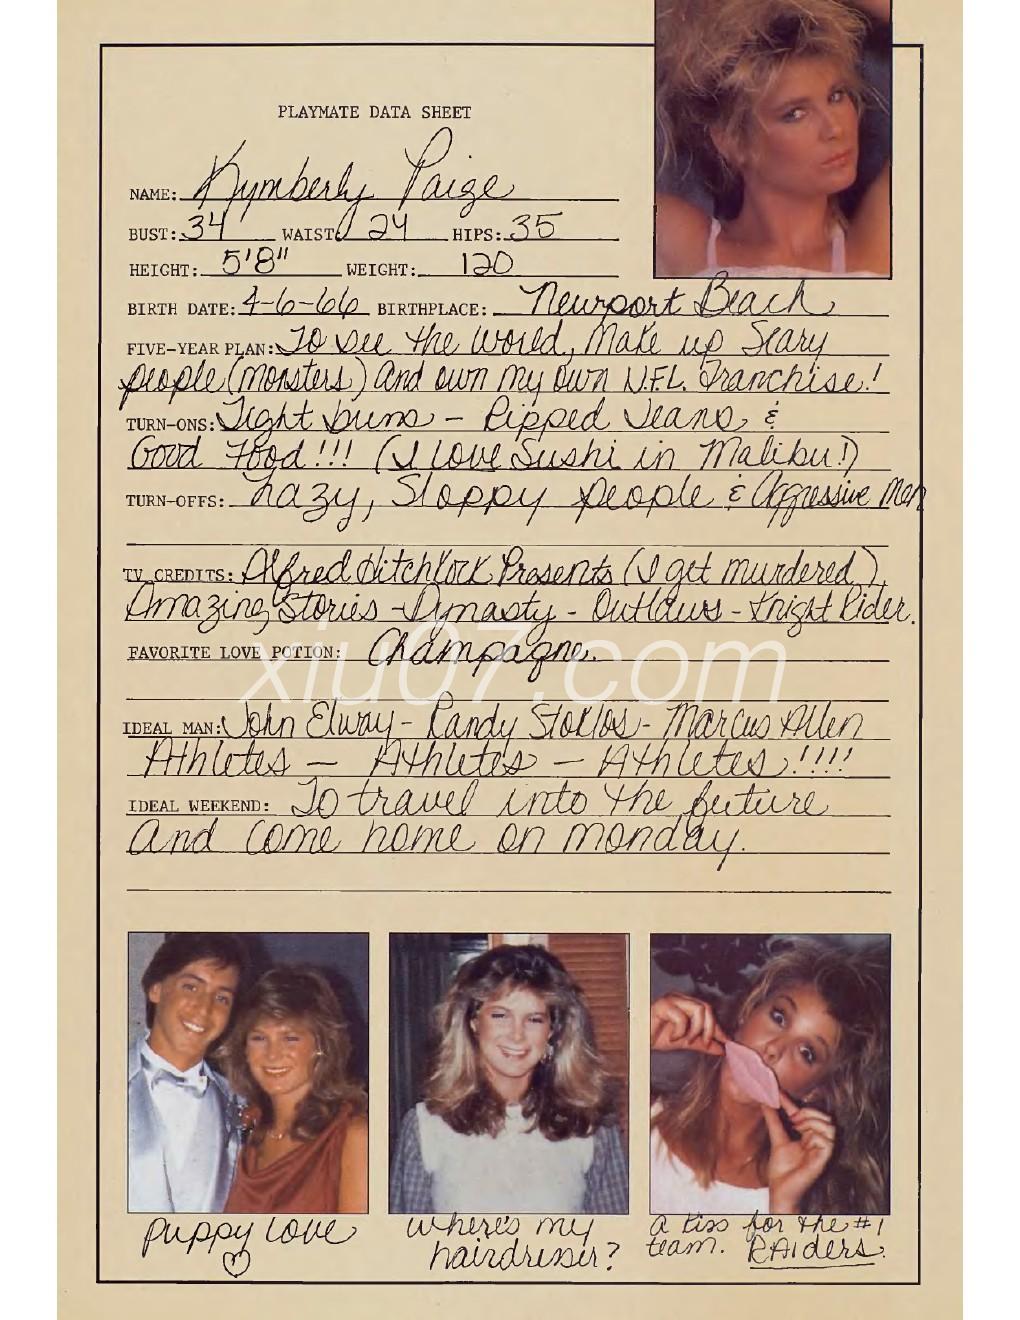 PLAYMATE DATA SHEET
NAME: Kymberly Paige
BUST: 34 WAIST: 24 HIPS: 35
HEIGHT: 5'8" WEIGHT: 120
BIRTH DATE: 4-6-66 BIRTHPLACE: Newport Beach
FIVE-YEAR PLAN: To see the world, Make up Scary
people (monsters) And own my own N.F.L. Franchise!
TURN-ONS: Tight buns - Ripped Jeans &
Good Food!!! (I love Sushi in Malibu!)
TURN-OFFS: Lazy, Sloppy people & Aggressive Men
TV CREDITS: Alfred Hitchkock Presents (I get murdered),
Amazing Stories - Dynasty - Outlaws - Knight Rider.
xiu07.com
FAVORITE LOVE POTION: Champagne.
IDEAL MAN: John Elway - Randy Stoklos - Marcus Allen
Athletes - Athletes - Athletes!!!!
IDEAL WEEKEND: To travel into the future
And come home on monday.
puppy love
where's my
hairdresser?
a kiss for the #1
team. RAiders.